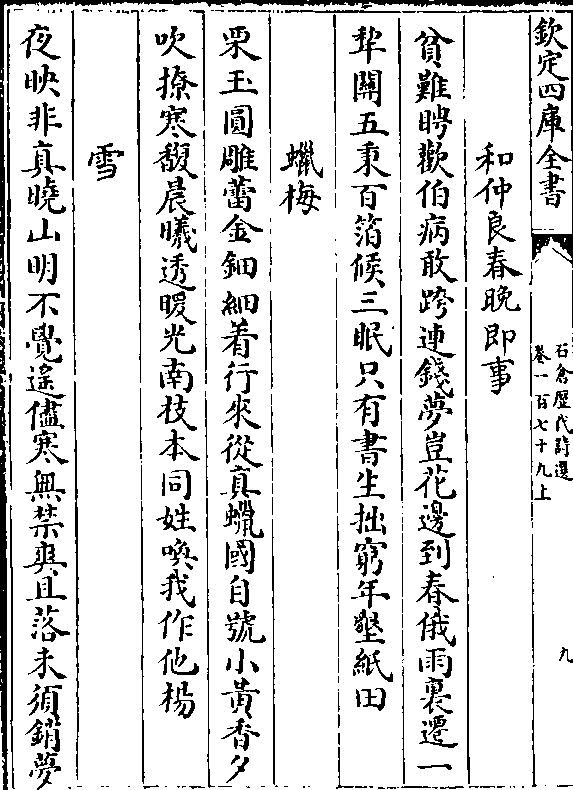 欽定四庫全書
石倉歷代詩選
卷一百七十九上
九
和仲良春晚即事
貧難聘歡伯病敢跨連錢夢豈花邊到春俄雨裏遷一
犂關五秉百箔候三眠只有書生拙窮年墾紙田
蠟梅
栗玉圓雕蕾金鈿細着行來從真蠟國自號小黃香夕
吹撩寒馥晨曦透暖光南枝本同姓喚我作他楊
雪
夜映非真曉山明不覺遙儘寒無禁爽且落未須銷夢